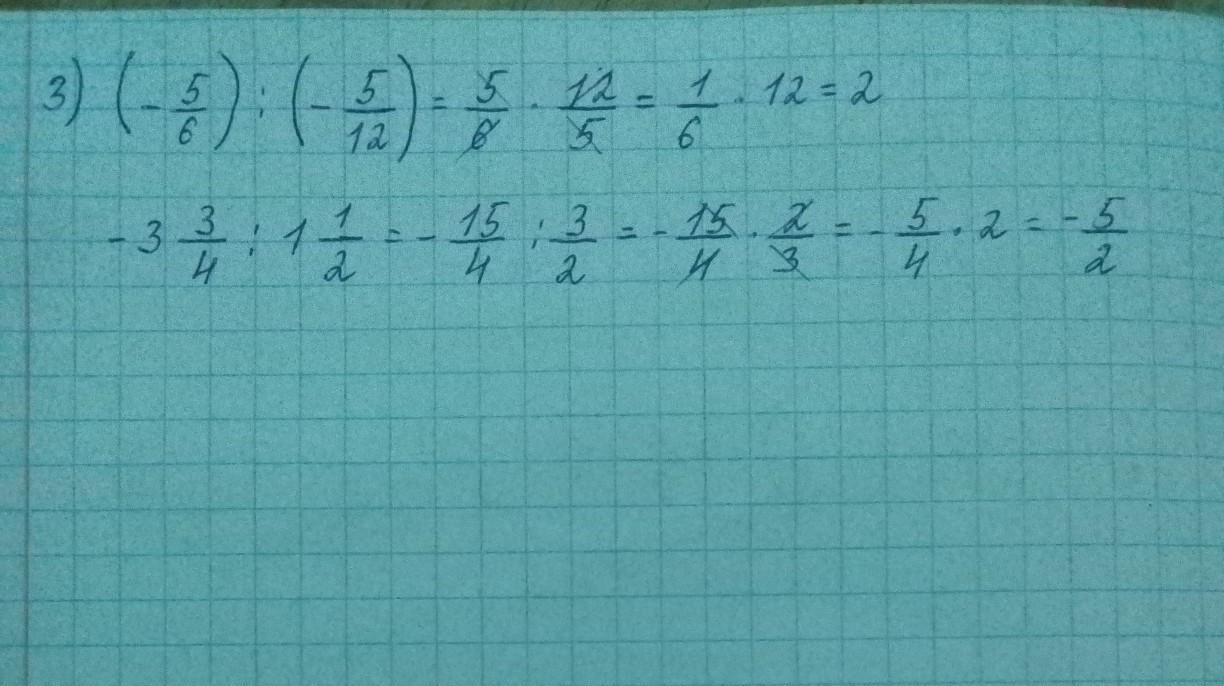 3) (- 5/6) : (- 5/12) = 5/6 · 12/5 = 1/6 · 12 = 2
- 3 3/4 : 1 1/2 = - 15/4 : 3/2 = - 15/4 · 2/3 = - 5/4 · 2 = - 5/2